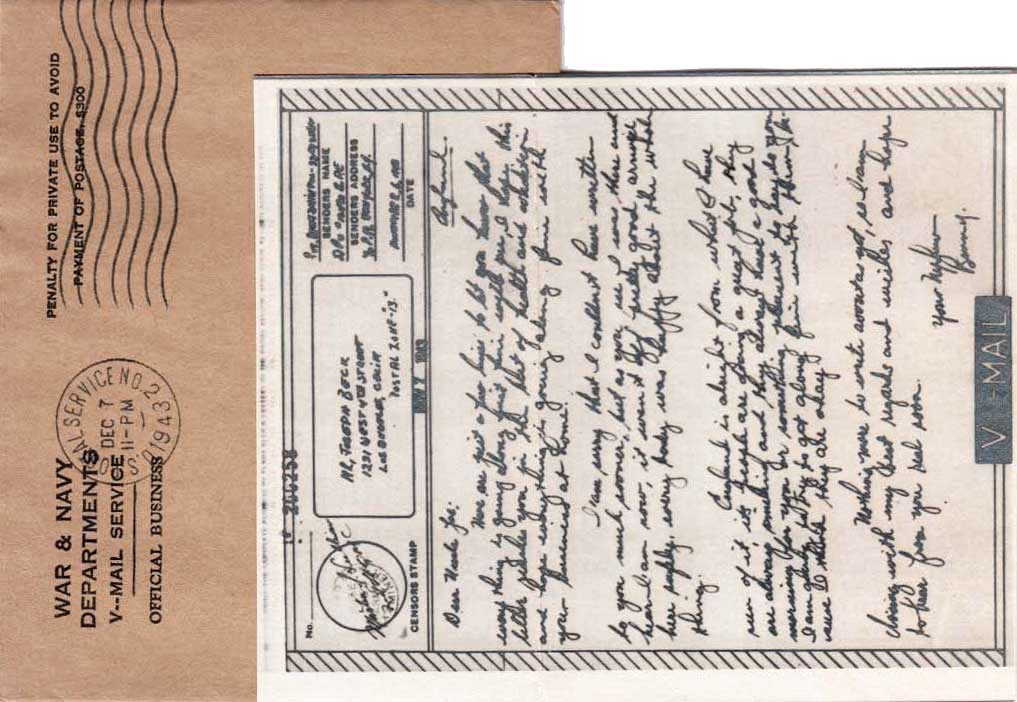 WAR & NAVY
DEPARTMENTS
V--MAIL SERVICE
OFFICIAL BUSINESS
PENALTY FOR PRIVATE USE TO AVOID
PAYMENT OF POSTAGE, $300
POSTAL SERVICE NO. 2
DEC 7
11-PM
1943
No.
200258
CENSORS STAMP
MR, JOSEPH BECK
1231 WEST 11TH
LOS ANGELES, CALIF
POSTAL ZONE-15.
SENDERS NAME
SENDERS ADDRESS
DATE
England.
Dear Uncle Joe:
Here are just a few lines to let you know that
every thing is going along just fine with me, I hope this
letter finds you in the best of health and
and hope everything is going along fine with
your business at home.
I am sorry that I couldn't have written
to you much sooner, but as you see I was then and
here I am now, it seem it
here safely. every body was happy about the whole
thing.
England is alright from what I have
seen of it, its people are doing a great job, they
are always smiling and they always have a good
morning for you or something pleasant to say
I am glad to get along fine with them
cause I think they are okay.
Nothing more to write about, so I am
closing with my best regards and wishes and hope
to hear from you real soon.
Your Nephew
Benny.
V-MAIL